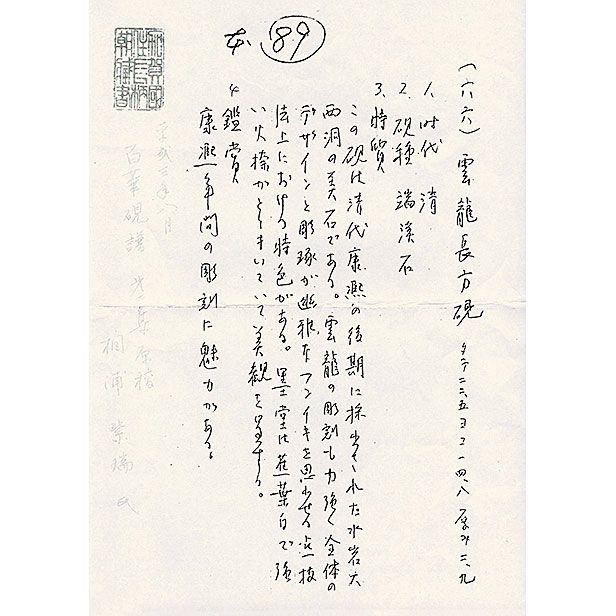 本 89
(一六六)雲龍長方硯 タテ二三・五 ヨコ一四・八 厚ミ二・九
1. 时代 清
2. 硯種 端溪石
3. 特質
この硯は清代康熙の後期に採出された水岩大
西洞の美石である。雲龍の彫刻も力強く全体の
デザインと彫琢が幽雅なフンイキを思わせる点技
法上における特色がある。墨堂は蕉葉白で強
い火捺がとりまいていて美観を呈する。
4. 鑑賞
康熙年間の彫刻に魅力がある。
百華硯譜
相浦紫瑞氏